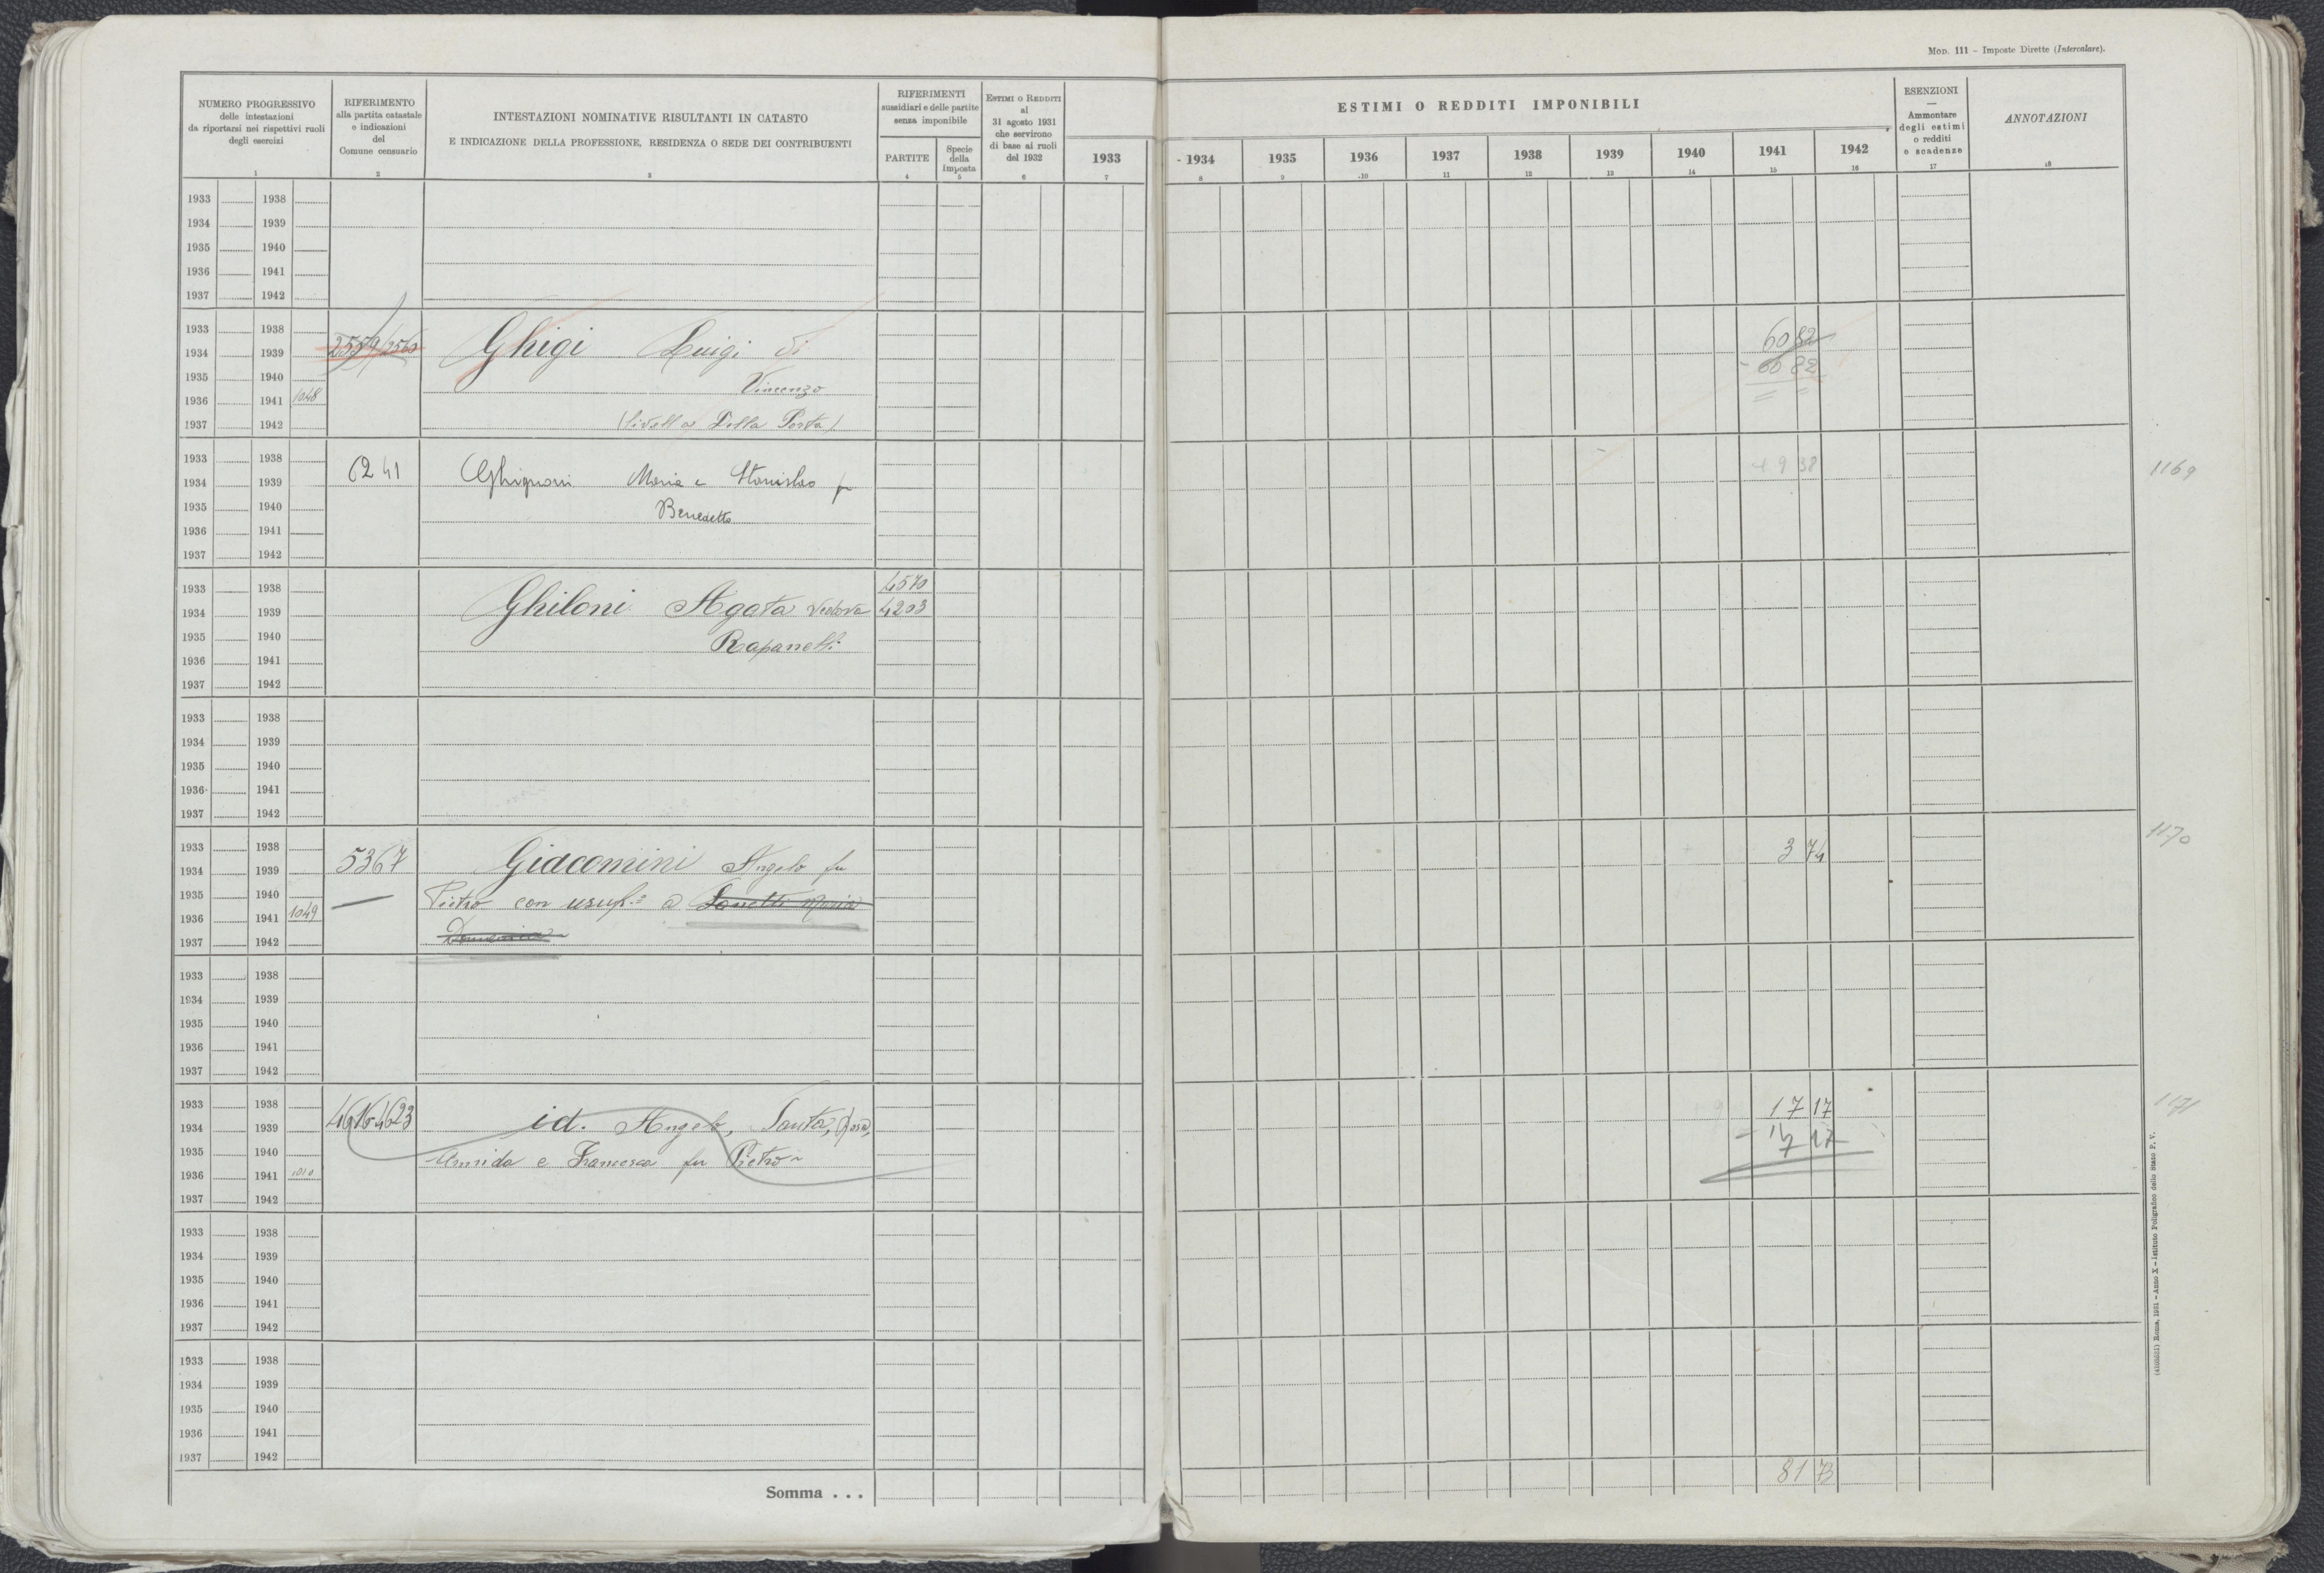 MOD. 111 - Imposte Dirette (Intercalare).
NUMERO PROGRESSIVO
delle intestazioni
da riportarsi nei rispettivi ruoli
degli esercizi
1
RIFERIMENTO
alla partita catastale
e indicazioni
del
Comune censuario
2
INTESTAZIONI NOMINATIVE RISULTANTI IN CATASTO
E INDICAZIONE DELLA PROFESSIONE, RESIDENZA O SEDE DEI CONTRIBUENTI
3
RIFERIMENTI
sussidiari e delle partite
senza imponibile
PARTITE
4
Specie
della
imposta
5
ESTIMI O REDDITI
al
31 agosto 1931
che servirono
di base ai ruoli
del 1932
6
ESTIMI O REDDITI IMPONIBILI
1933 1934 1935 1936 1937 1938 1939 1940 1941 1942
7 8 9 10 11 12 13 14 15 16
ESENZIONI
—
Ammontare
degli estimi
o redditi
o scadenze
17
ANNOTAZIONI
18
1933 1938
1934 1939
1935 1940
1936 1941
1937 1942
1933 1938
1934 1939 2559/2560 Ghigi Luigi di 6082
1935 1940 Vincenzo - 6082
1936 1941 1048
1937 1942 (livell a Della Porta)
1933 1938 6241 + 9 38 1169
1934 1939 Ghignoni Maria e Stanislao fu
1935 1940 Benedetto
1936 1941
1937 1942
1933 1938 4570
1934 1939 Ghiloni Agata vedova 4203
1935 1940 Rapanelli
1936 1941
1937 1942
1933 1938
1934 1939
1935 1940
1936 1941
1937 1942
1933 1938 1170
1934 1939 5367 Giacomini Angelo fu 3 74
1935 1940 Pietro con usuf. a Maria
1936 1941 1049
1937 1942 Domenica
1933 1938
1934 1939
1935 1940
1936 1941
1937 1942
1933 1938 4616-4623 17 17 1171
1934 1939 id. Angelo, Santa, Rosa,
1935 1940 e Francesca fu Pietro - 17 17
1936 1941
1937 1942
1933 1938
1934 1939
1935 1940
1936 1941
1937 1942
1933 1938
1934 1939
1935 1940
1936 1941
1937 1942
Somma . . . 81 73
Roma, 1931 - Anno X - Istituto Poligrafico dello Stato P. V.